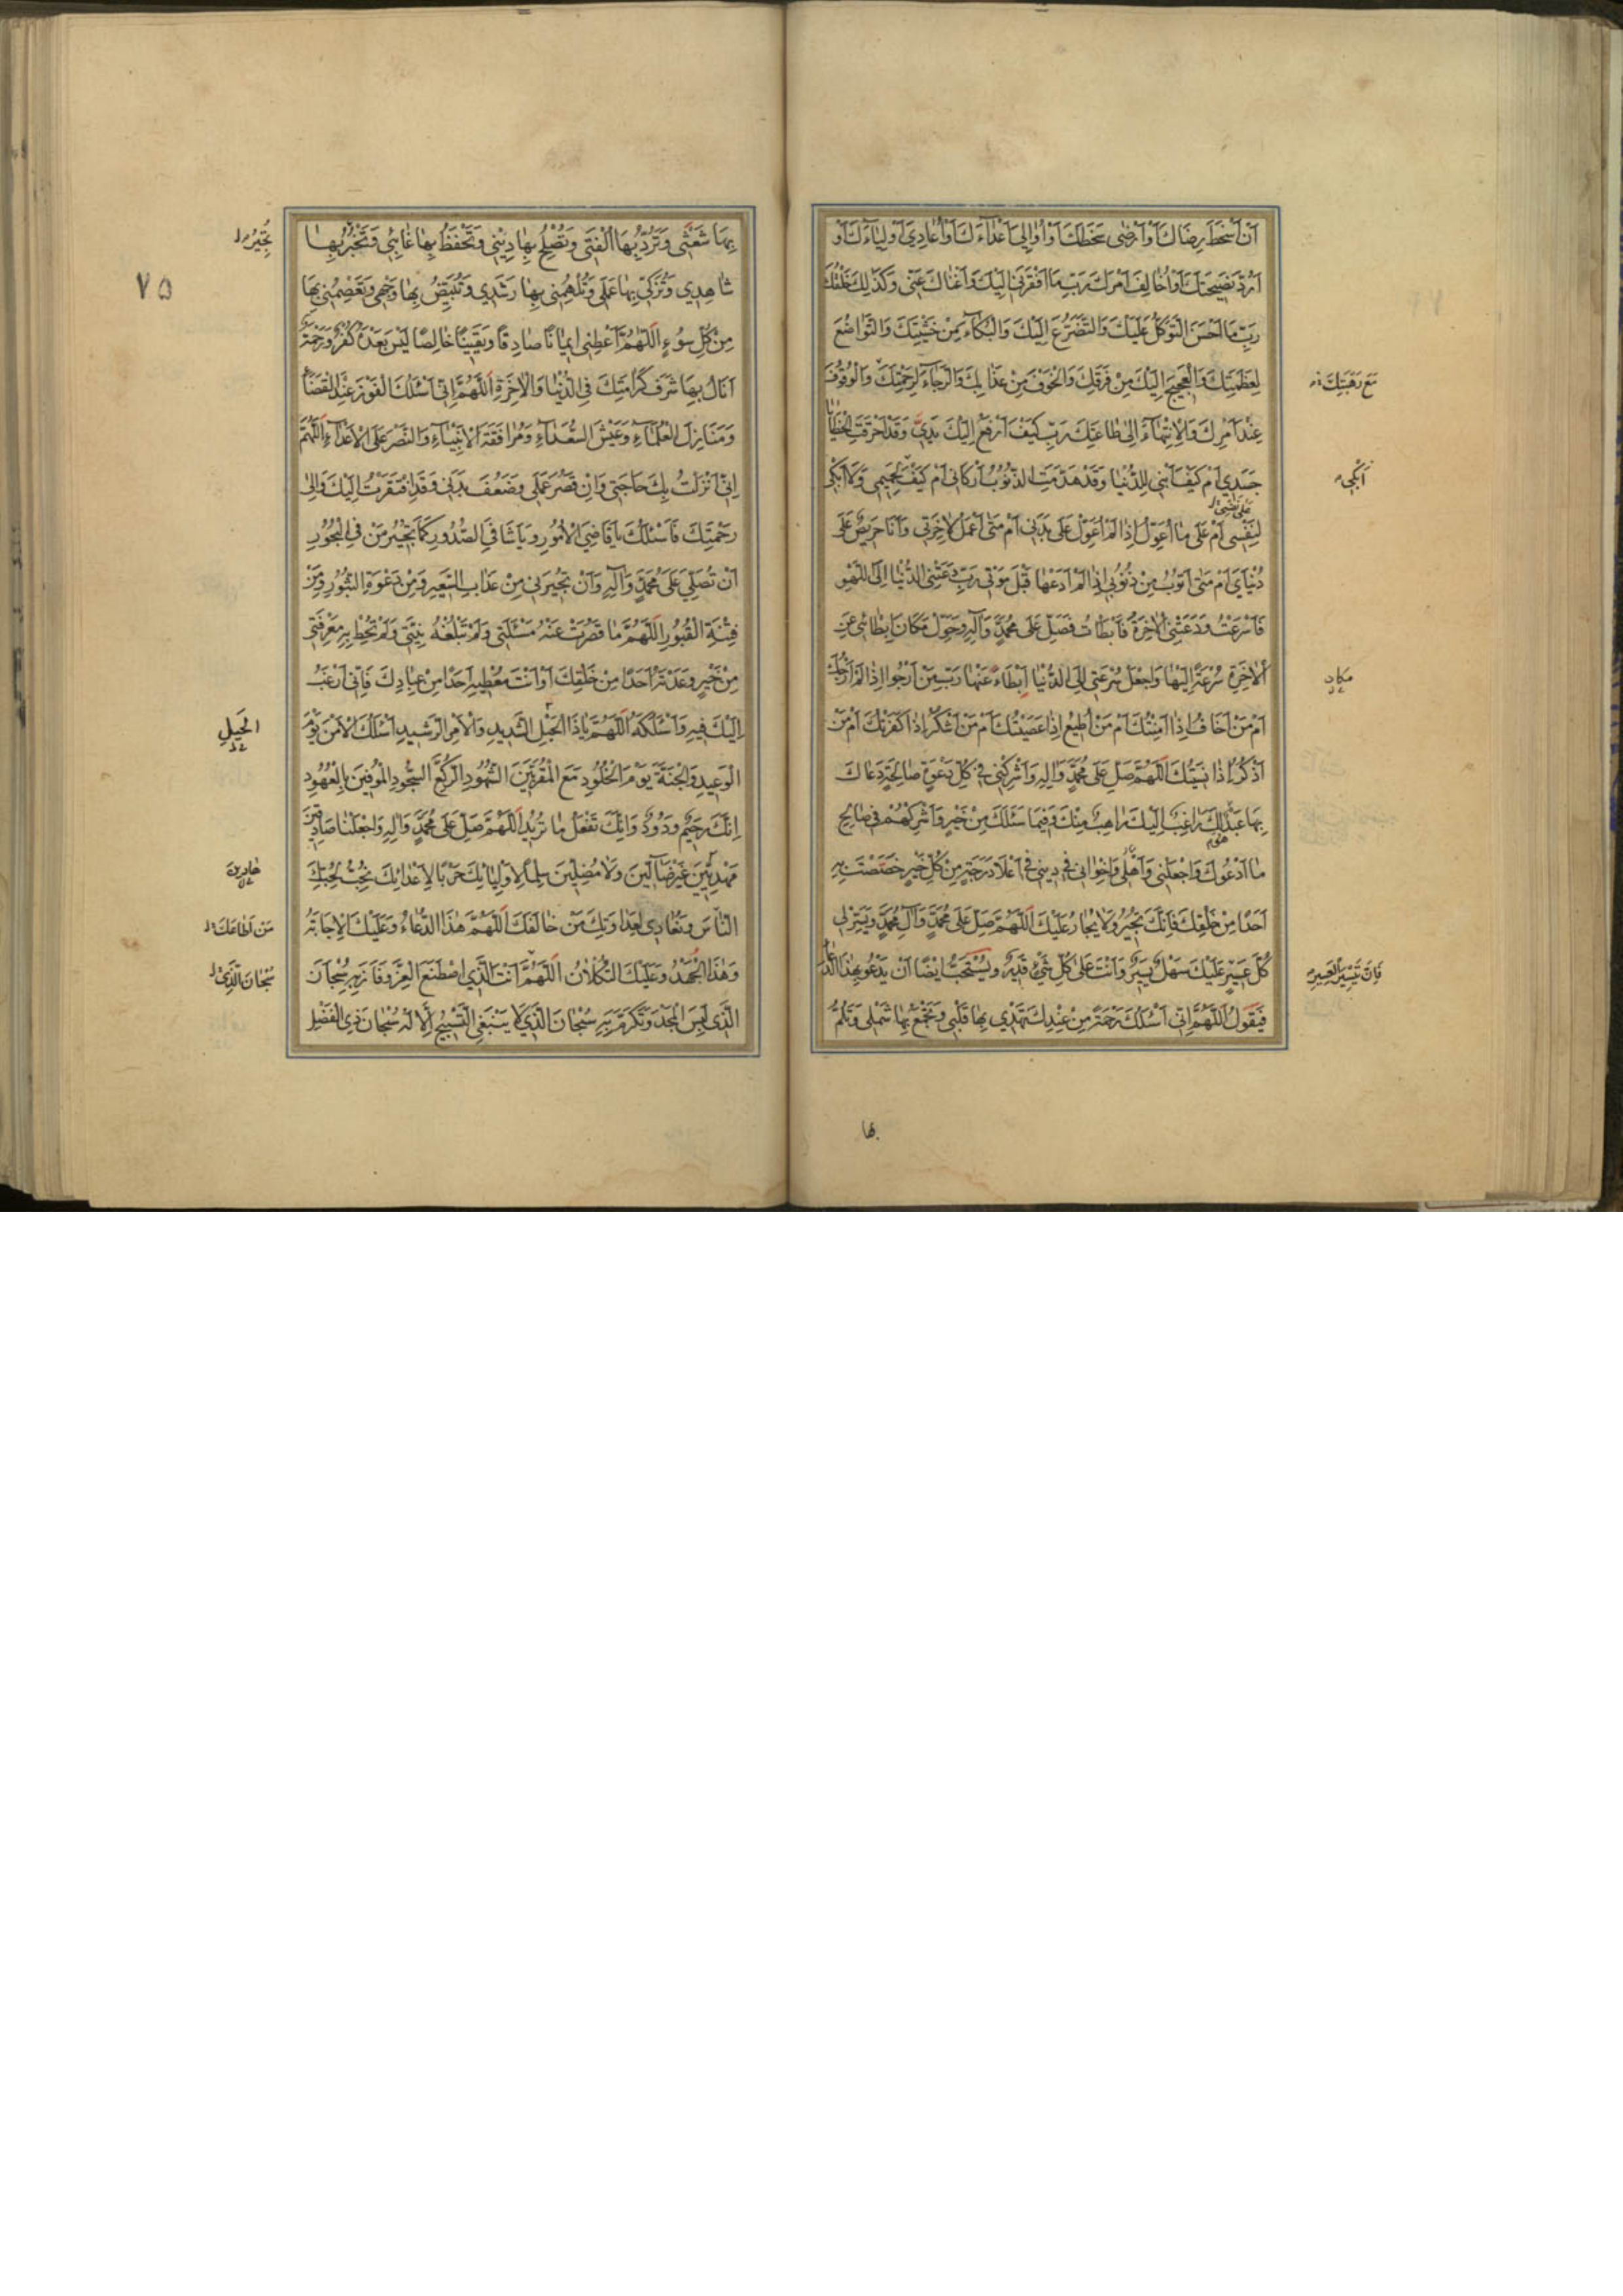 اَنْ اَسْخَطَ رِضَاكَ اَوْ اَرْضٰى سَخَطَكَ اَوْ اُوَالِىَ اَعْدَآءَكَ اَوْ اُعَادِىَ اَوْلِيَآءَكَ اَوْ
اَرُدَّ نَصِيحَتَكَ اَوْ اُخَالِفَ اَمْرَكَ رَبِّ مَا اَفْقَرَنى اِلَيْكَ وَاَغْنَاكَ عَنّى وَكَذٰلِكَ خَلْقُكَ
رَبِّ مَا اَحْسَنَ التَّوَكُّلَ عَلَيْكَ وَالتَّضَرُّعَ اِلَيْكَ وَالْبُكَآءَ مِنْ خَشْيَتِكَ وَالتَّوَاضُعَ
لِعَظَمَتِكَ وَالْعَجِيجَ اِلَيْكَ مِنْ فَرَقِكَ وَالْخَوْفَ مِنْ عَذَابِكَ وَالرَّجَآءَ لِرَحْمَتِكَ وَالْوُقُوفَ
مَعَ رَهْبَتِكَ
عِنْدَ اَمْرِكَ وَالْاِنْتِهَآءَ اِلٰى طَاعَتِكَ رَبِّ كَيْفَ اَرْفَعُ اِلَيْكَ يَدِىَّ وَقَدْ اَحْرَقَتِ الْخَطَايَا
جَسَدِى اَمْ كَيْفَ اَبْنى لِلدُّنْيَا وَقَدْ هَدَمَتِ الذُّنُوبُ اَرْكَانى اَمْ كَيْفَ لِحَمِيمى وَلَا اَبْكى
اَبْكِى
عَلٰى نَفْسِى
لِنَفْسى اَمْ عَلٰى مَا اُعَوِّلُ اِذَا لَمْ اُعَوِّلْ عَلٰى بَدَنى اَمْ مَتٰى اَعْمَلُ لِاٰخِرَتى وَاَنَا حَرِيصٌ عَلٰى
دُنْيَاىَ اَمْ مَتٰى اَتُوبُ مِنْ ذُنُوبى اِذَا لَمْ اَدَعْهَا قَبْلَ مَوْتى رَبِّ دَعَتْنِى الدُّنْيَا اِلَى اللَّهْوِ
فَاَسْرَعْتُ وَدَعَتْنِى الْاٰخِرَةُ فَاَبْطَاْتُ فَصَلِّ عَلٰى مُحَمَّدٍ وَاٰلِهِ وَحَوِّلْ مَكَانَ اِبْطَائى عَنِ
الْاٰخِرَةِ سُرْعَةً اِلَيْهَا وَاجْعَلْ سُرْعَتى اِلَى الدُّنْيَا اِبْطَاءً عَنْهَا رَبِّ مَنْ اَرْجُوا اِذَا لَمْ اَرْجُكَ
اَمْ مَنْ اَخَافُ اِذَا اَمِنْتُكَ اَمْ مَنْ اُطِيعُ اِذَا عَصَيْتُكَ اَمْ مَنْ اَشْكُرُ اِذَا كَفَرْتُكَ اَمْ مَنْ
اَذْكُرُ اِذَا نَسِيتُكَ اَللّٰهُمَّ صَلِّ عَلٰى مُحَمَّدٍ وَاٰلِهِ وَاَشْرِكْنى فى كُلِّ دَعْوَةٍ صَالِحَةٍ دَعَاكَ
بِهَا عَبْدٌ لَكَ رَاغِبٌ اِلَيْكَ رَاهِبٌ مِنْكَ وَفِيمَا سَئَلَكَ مِنْ خَيْرٍ وَاَشْرِكْهُمْ فى صَالِحِ
مَا اَدْعُوكَ وَاجْعَلْنى وَاَهْلى وَاِخْوَانى فى دِينى فى اَعْلَا دَرَجَةٍ مِنْ كُلِّ خَيْرٍ خَصَصْتَ بِهِ
اَحَدًا مِنْ خَلْقِكَ فَاِنَّكَ تُجِيرُ وَلَا يُجَارُ عَلَيْكَ اَللّٰهُمَّ صَلِّ عَلٰى مُحَمَّدٍ وَاٰلِ مُحَمَّدٍ وَيَسِّرْ لى
كُلَّ عَسِيرٍ عَلَيْكَ سَهْلٌ يَسِيرٌ وَاَنْتَ عَلٰى كُلِّ شَىْءٍ قَدِيرٌ وَيُسْتَحَبُّ اَيْضًا اَنْ يَدْعُوَ بِهٰذَا الدُّعَآءِ
فَاِنَّ تَيْسِيرَ الْعَسِيرِ
فَيَقُولَ اَللّٰهُمَّ اِنّى اَسْئَلُكَ رَحْمَةً مِنْ عِنْدِكَ تَهْدِى بِهَا قَلْبى وَتَجْمَعُ بِهَا شَمْلى وَتَلُمُّ
بها
بِهَا شَعَثى وَتَرُدُّ بِهَا اُلْفَتى وَتُصْلِحُ بِهَا دِينى وَتَحْفَظُ بِهَا غَائِبى وَتَجْبُرُ بِهَا
٧٥
شَاهِدِى وَتُزَكّى بِهَا عَمَلى وَتُلْهِمُنى بِهَا رَشَدِى وَتُبَيِّضُ بِهَا وَجْهى وَتَعْصِمُنى بِهَا
مِنْ كُلِّ سُوءٍ اَللّٰهُمَّ اَعْطِنى اِيمَانًا صَادِقًا وَيَقِينًا خَالِصًا لَيْسَ بَعْدَهُ كُفْرٌ وَرَحْمَةً
اَنَالُ بِهَا شَرَفَ كَرَامَتِكَ فِى الدُّنْيَا وَالْاٰخِرَةِ اَللّٰهُمَّ اِنّى اَسْئَلُكَ الْفَوْزَ عِنْدَ الْقَضَآءِ
وَمَنَازِلَ الْعُلَمَآءِ وَعَيْشَ السُّعَدَآءِ وَمُرَافَقَةَ الْاَنْبِيَآءِ وَالنَّصْرَ عَلَى الْاَعْدَآءِ اَللّٰهُمَّ
اِنّى اَنْزَلْتُ بِكَ حَاجَتى وَاِنْ قَصُرَ عَمَلى وَضَعُفَ بَدَنى وَقَدِ افْتَقَرْتُ اِلَيْكَ وَاِلٰى
رَحْمَتِكَ فَاَسْئَلُكَ يَا قَاضِىَ الْاُمُورِ وَيَا شَافِىَ الصُّدُورِ كَمَا تُجِيرُ مَنْ فِى الْبُحُورِ
اَنْ تُصَلِّىَ عَلٰى مُحَمَّدٍ وَاٰلِهِ وَاَنْ تُجِيرَنى مِنْ عَذَابِ السَّعِيرِ وَمِنْ دَعْوَةِ الثُّبُورِ وَمِنْ
فِتْنَةِ الْقُبُورِ اَللّٰهُمَّ مَا قَصُرَتْ عَنْهُ مَسْئَلَتى وَلَمْ تَبْلُغْهُ نِيَّتى وَلَمْ تُحِطْ بِهِ مَعْرِفَتى
مِنْ خَيْرٍ وَعَدْتَهُ اَحَدًا مِنْ خَلْقِكَ اَوْ اَنْتَ مُعْطِيهِ اَحَدًا مِنْ عِبَادِكَ فَاِنّى اَرْغَبُ
اِلَيْكَ فِيهِ وَاَسْئَلُكَهُ اَللّٰهُمَّ يَا ذَا الْحَبْلِ الشَّدِيدِ وَالْاَمْرِ الرَّشِيدِ اَسْئَلُكَ الْاَمْنَ يَوْمَ
الْحَيْلِ
الْوَعِيدِ وَالْجَنَّةَ يَوْمَ الْخُلُودِ مَعَ الْمُقَرَّبِينَ الشُّهُودِ الرُّكَّعِ السُّجُودِ الْمُوفِينَ بِالْعُهُودِ
اِنَّكَ رَحِيمٌ وَدُودٌ وَاِنَّكَ تَفْعَلُ مَا تُرِيدُ اَللّٰهُمَّ صَلِّ عَلٰى مُحَمَّدٍ وَاٰلِهِ وَاجْعَلْنَا صَادِقِينَ
مَهْدِيّينَ غَيْرَ ضَآلّينَ وَلَا مُضِلّينَ سِلْمًا لِاَوْلِيَائِكَ حَرْبًا لِاَعْدَائِكَ نُحِبُّ بِحُبِّكَ
هَادِينَ
النَّاسَ وَنُعَادِى بِعَدَاوَتِكَ مَنْ خَالَفَكَ اَللّٰهُمَّ هٰذَا الدُّعَاءُ وَعَلَيْكَ الْاِجَابَةُ
مَنْ اَطَاعَكَ
وَهٰذَا الْجُهْدُ وَعَلَيْكَ التُّكْلَانُ اَللّٰهُمَّ اَنْتَ الَّذِى اصْطَنَعَ الْعِزَّ وَفَازَ بِهِ سُبْحَانَ
سُبْحَانَ الَّذِى
الَّذِى لَبِسَ الْمَجْدَ وَتَكَرَّمَ بِهِ سُبْحَانَ الَّذِى لَا يَنْبَغِى التَّسْبِيحُ اِلَّا لَهُ سُبْحَانَ ذِى الْفَضْلِ